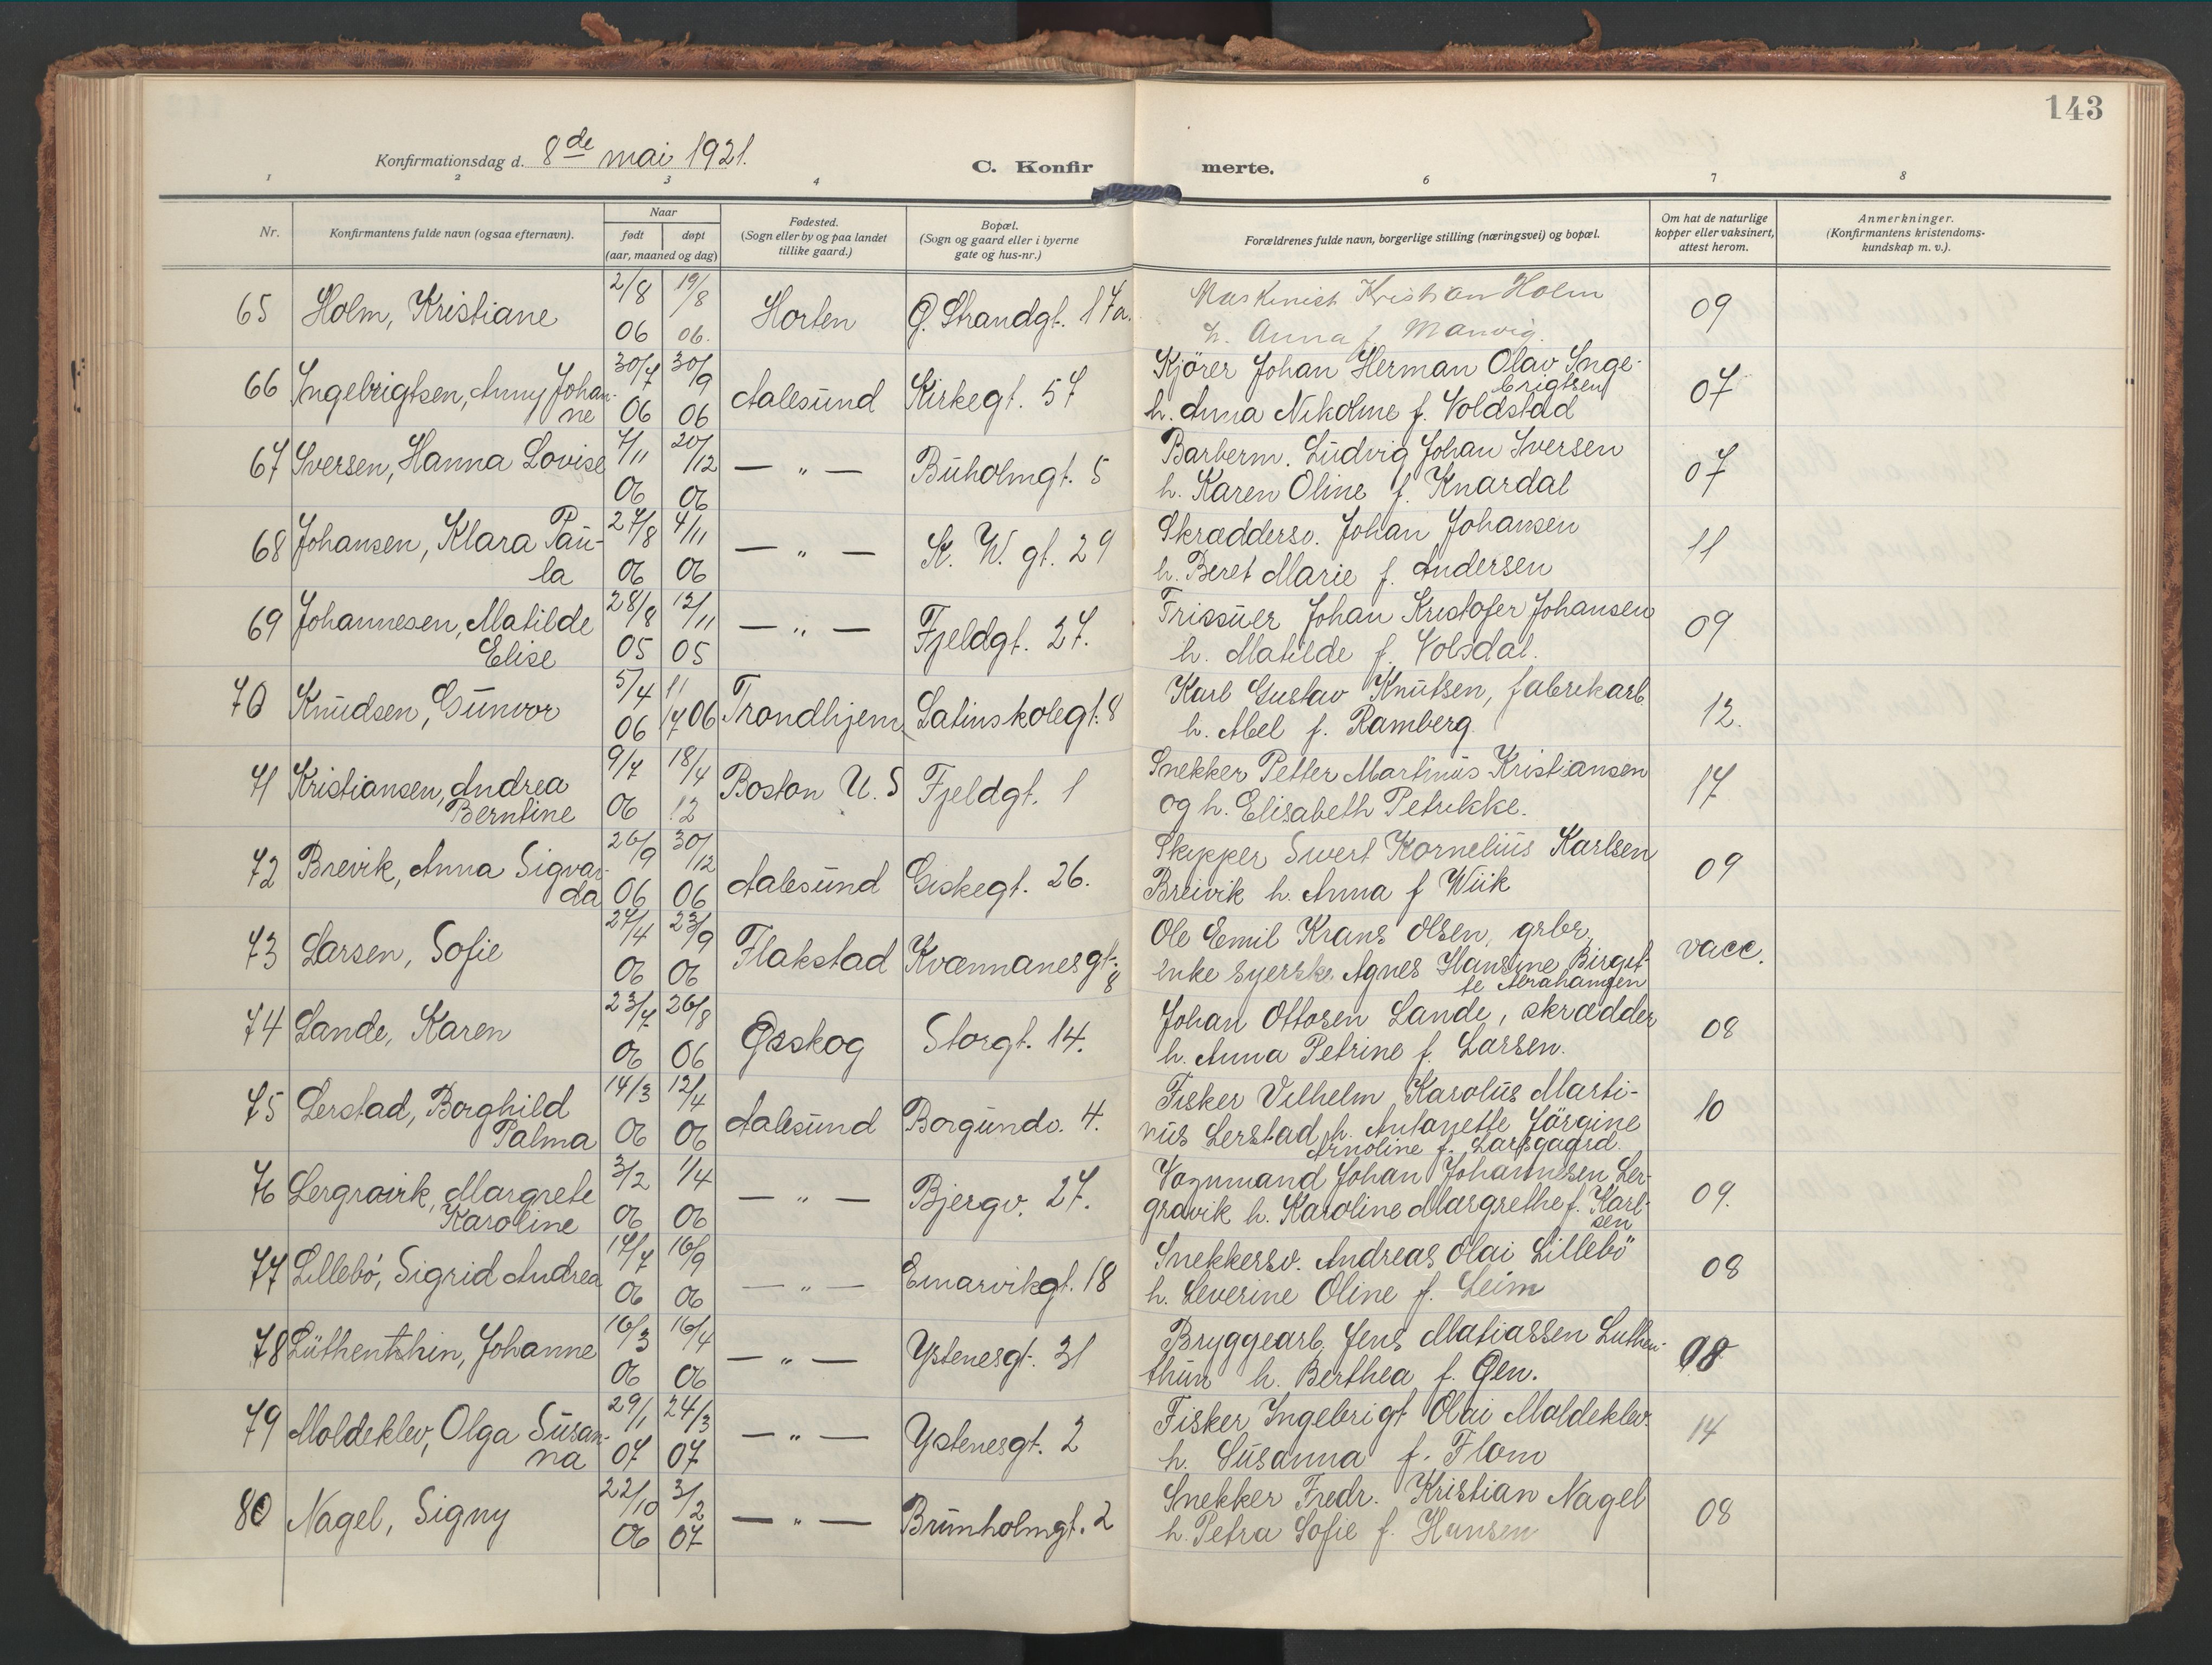 143
Konfirmationsdag d. 8de mai 1921.
C. Konfirmerte.
1 2 3 4 6 7 8
Nr.
Konfirmantens fulde navn (ogsaa efternavn).
Naar
født døpt
(aar, maaned og dag)
Fødested.
(Sogn eller by og paa landet
tillike gaard.)
Bopæl.
(Sogn og gaard eller i byerne
gate og hus-nr.)
Forældrenes fulde navn, borgerlige stilling (næringsvei) og bopæl.
Om hat de naturlige
kopper eller vaksinert,
attest herom.
Anmerkninger.
(Konfirmantens kristendoms-
kundskap m. v.).
65 Holm, Kristiane 2/8 06 19/8 06. Horten Ø. Strandgt. 17a. Maskinist Kristian Holm
h. Anna f. Manvig. 09
66 Ingebrigtsen, Anny Johan-
ne 30/7 06 30/9 06 Aalesund Kirkegt. 57 Kjörer Johan Herman Olav Inge-
brigtsen
h. Anna Nikoline f. Voldstad 07
67 Iversen, Hanna Lovise 7/11 06 20/12 06 — " — Buholmgt. 5 Barberm. Ludvig Johan Iversen
h. Karen Oline f. Knardal 07
68 Johansen, Klara Pau-
la 27/8 06 4/11 06 — " — K. W. gt. 29 Skræddersv. Johan Johansen
h. Beret Marie f. Andersen 11
69 Johannesen, Matilde
Elise 28/8 05 12/11 05 — " — Fjeldgt. 27. Frissuer Johan Kristofer Johansen
h. Matilde f. Volsdal. 09
70 Knudsen, Gunvor 5/4 06 11/7 06 Trondhjem Latinskolegt. 8 Karl Gustav Knutsen, fabrikarb.
h. Abel f. Ramberg 12.
71 Kristiansen, Andrea
Berntine 9/7 06 18/4 12 Boston U. S Fjeldgt. 1 Snekker Petter Martinus Kristiansen
og h. Elisabeth Petrikke. 17
72 Brevik, Anna Sigvar-
da 26/9 06 30/12 06 Aalesund Giskegt. 26. Skipper Sivert Kornelius Karlsen
Breivik h. Anna f Wiik 09
73 Larsen, Sofie 27/4 06 23/9 06 Flakstad Kvænnanesgt.
8 Ole Emil Krans Olsen, grbr,
enke syerske Agnes Hansine Birget-
te Abrahamsen vacc.
74 Lande, Karen 23/7 06 26/8 06 Ørskog Storgt. 14. Johan Ottosen Lande, skrædder
h. Anna Petrine f. Larsen. 08
75 Lerstad, Borghild
Palma 14/3 06 12/4 06 Aalesund Borgundv. 4. Fisker Vilhelm Karolus Marti-
nus Lerstad, h. Antonette Jörgine
Arnoline f. Larsgaard. 10
76 Lergrovik, Margrete
Karoline 3/2 06 1/4 06 — " — Bjergv. 27. Vognmand Johan Johannesen Ler-
gravik h. Karoline Margrethe f. Karl-
sen 09.
77 Lillebö, Sigrid Andrea 14/7 06 16/9 06 — " — Einarvikgt. 18 Snekkersv. Andreas Olai Lillebö
h. Severine Oline f. Leim 08
78 Lüthenthin, Johanne 16/3 06 16/4 06 — " — Ystenesgt. 31 Bryggearb. Jens Matiassen Luthen-
thun h. Berthea f. Øen. 08
79 Moldeklev, Olga Susan-
na 29/1 07 24/3 07 — " — Ystenesgt. 2 Fisker Ingebrigt Olai Moldeklev
h. Susanna f. Flom 14
80 Nagel, Signy 22/10 06 3/2 07 — " — Brunholmgt. 2 Snekker Fredr. Kristian Nagel
h. Petra Sofie f. Hansen 08